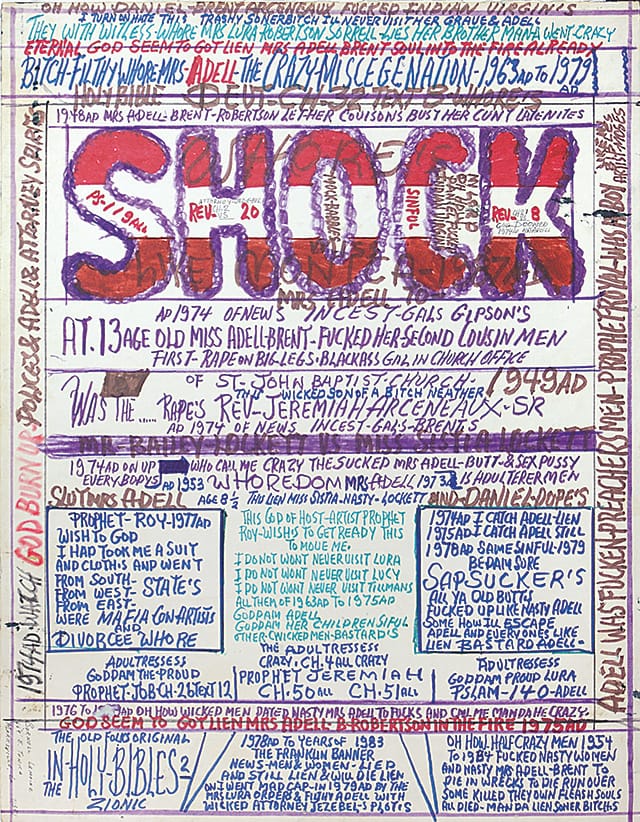 OH HOW DANIEL BRENT ARCENEAUX FUCKED INDIAN VIRGIN'S
I TURN ON HATE THIS TRASHY SONERBITCH ILL NEVER VISIT HER GRAVE & ADELL
THEY WITH WITLESS WHORE MRS LURA-ROBERTSON SORRELL-LIES HER BROTHER MAN-A WENT-CRAZY
ETERNAL GOD SEEM TO GOT LIEN MRS ADELL BRENT SOUL INTO THE FIRE ALREADY
BITCH-FILTHY WHORE MRS ADELL THE CRAZY-MISCEGENATION-1963 AD TO 1979 AD
HOLY BIBLE DEUT-CH-32 TEXT 8 WHORE'S
1948AD MRS ADELL-BRENT-ROBERTSON LET HER COUISONS BUST HER CUNY LATENITES
SHOCK
PS-119 ALL
REV- 20
SINFUL
REV- 8
MRS ADELL TO-
AD 1974 OF NEWS INCEST-GALS GIPSON'S
AT. 13 AGE OLD MISS ADELL-BRENT-FUCKED HER-SECOND COUSIN MEN
FIRST-RAPE ON BIG-LEGS-BLACKASS GAL IN CHURCH OFFICE
OF ST-JOHN BAPTIST-CHURCH- 1949AD
THIS WICKED SON OF A BITCH NEATHER
WAS THE ..... RAPE'S REV-JEREMIAH ARCENEAUX-SR
AD 1974 OF NEWS INCEST-GALS-BRENTS
MR BAILEY LOCKETT VS MISS SISTIA LOCKETT
1974AD ON UP WHO CALL ME CRAZY THE SUCKED MRS ADELL-BUTT-& SEX PUSSY
EVERY BODYS AD 1953 WHOREDOM MRS ADELL 1973 IS ADULTERER MEN
SLUT MRS ADELL AGE 8½ THIS LIEN MISS SISTIA-NASTY-LOCKETT AND-DANIEL-DOPE'S
PROPHET-ROY-1977AD
WISH TO GOD
I HAD TOOK ME A SUIT
AND CLOTH'S AND WENT
FROM SOUTH-
FROM WEST- STATE'S
FROM EAST-
WERE MAFIA CON ARTISTS
AND
DIVORCEE WHORE
THIS GOD OF HOST-ARTIST PROPHET
ROY-WISH'S TO GET READY THIS
TO MOVE ME.
I DO NOT WONT NEVER VISIT LURA
I DO NOT WONT NEVER VISIT LUCY
I DO NOT WONT NEVER VISIT TILLMANS
ALL THEM OF 1963AD TO 1975AD
GODDAM ADELL
GODDAM HER CHILDREN SIFUL
OTHER-CWICKED MEN-BASTARD'S
1974AD I CATCH ADELL-LIEN
1975AD I CATCH ADELL STILL
1978AD SAME SINFUL-1979
BE-DAM SORE
SAP-SUCKER'S
ALL YA OLD BUTTS
FUCKED UP LIKE NASTY ADELL
SOME HOW ILL ESCAPE
ADELL AND EVERY ONE'S LIKE
LIEN BASTARD ADELL-
ADULTRESSESS
GODDAM THE PROUD
PROPHET-JOB-CH-26 TEXT 12
THE ADULTRESSESS
CRAZY. CH. 4 ALL CRAZY
PROPHET JEREMIAH
CH. 50 ALL CH. 51 ALL
ADULTRESSESS
GODDAM PROUD LURA
PSLAM-140-ADELL
1976 TO 1978AD OH HOW WICKED MEN DATED NASTY MRS ADELL TO FUCKS AND CALL ME MANDA HE CRAZY-
GOD SEEM TO GOT LIEN MRS ADELL-B-ROBERTSON IN THE FIRE 1975AD
THE OLD FOLKS ORIGINAL
IN THE HOLY-BIBLES 2
ZIONIC
1978AD TO YEARS OF 1983
THE FRANKLIN BANNER
NEWS-MEN & WOMEN-LIED
AND STILL LIEN & WILL DIE LIEN
ON I WENT MAD CAP-IN 1979AD BY THE
MRS LURA ORDERS & FILTHY ADELL WITH
WICKED ATTORNEY JEZEBEL'S PLOT'S
OH HOW. HALF CRAZY MEN 1954
TO 1984 FUCKED NASTY WOMEN
AND NASTY MRS ADELL-BRENT-TO
DIE IN WRECKS TO DIE RUN OVER
SOME KILLED THEY OWN FLEASH SOULS
ALL DIED-MAN DA LIEN SONER BITCH'S
1974AD WATCH GOD BURN UP-POLICES & ADELL & ATTORNEY SPIRITS
ADELL WAS FUCKEN-PREACHERS MEN-PROPHET ROYAL-WAS A BOY